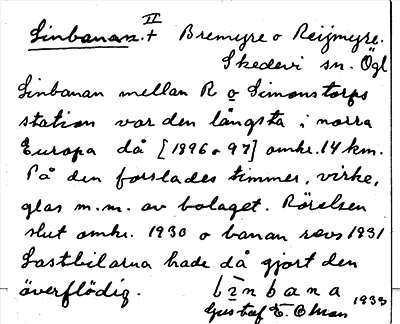 Linbanan. II † Bremyre o Reijmyre.
Skedevi sn. Ögl
Linbanan mellan R o Simonstorps
station var den längsta i norra
Europa då [1896 o 97] omkr. 14 km.
På den forslades timmer, virke,
glas m.m. av bolaget. Rörelsen
slut omkr. 1930 o banan revs 1931
Lastbilarna hade då gjort den
överflödig. lìnbana 1933
Gustaf E. Ohman